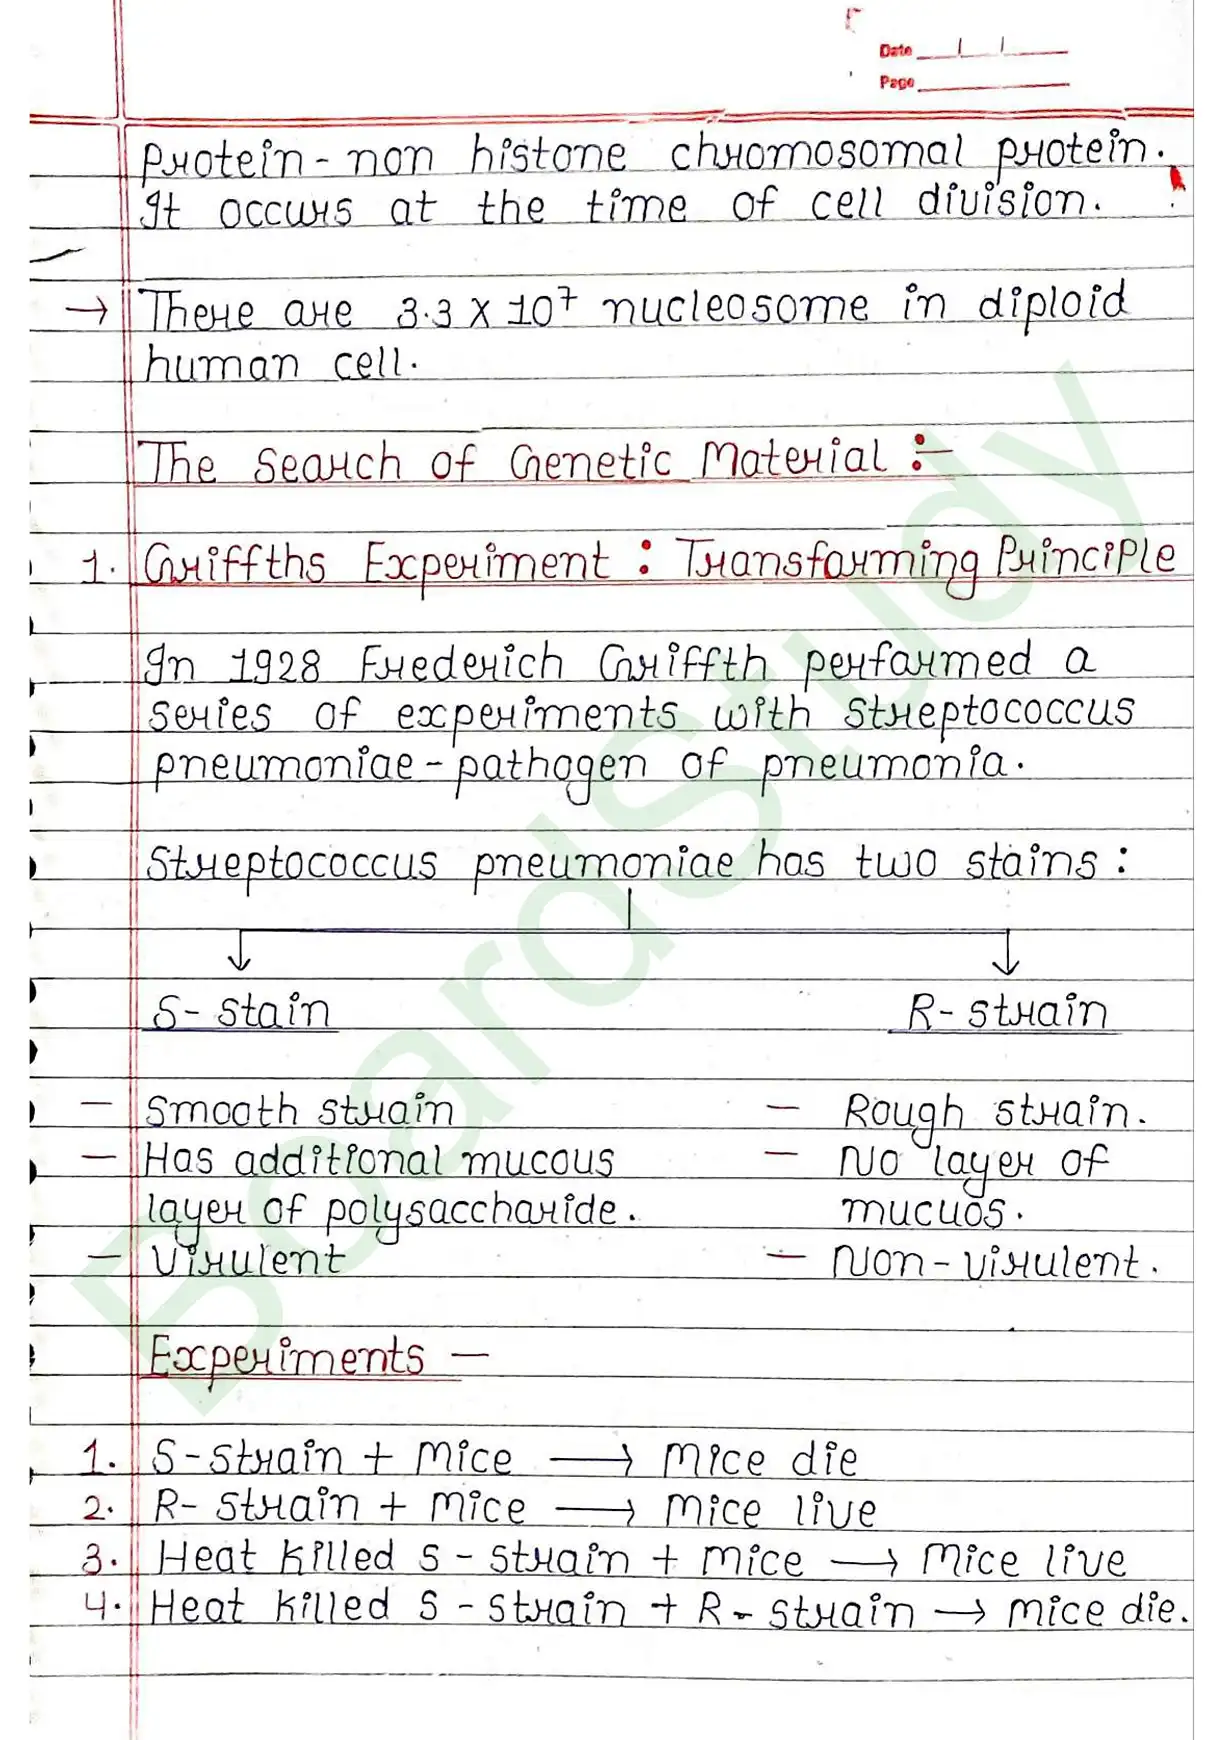 Date
Page
Protein - non histone chromosomal protein.
It occurs at the time of cell division.
→ There are 3.3 X 10⁷ nucleosome in diploid
human cell.
The Search of Genetic Material :-
1. Griffths Experiment : Transforming Principle
In 1928 Frederich Griffth performed a
series of experiments with streptococcus
pneumoniae - pathogen of pneumonia.
Streptococcus pneumoniae has two stains :
S - stain R - strain
- Smooth strain - Rough strain.
- Has additional mucous - No layer of
layer of polysaccharide. mucuos.
- Virulent - Non - virulent.
Experiments -
1. S - strain + Mice → Mice die
2. R - strain + Mice → Mice live
3. Heat killed S - strain + Mice → Mice live
4. Heat killed S - strain + R - strain → mice die.
BoardStudy